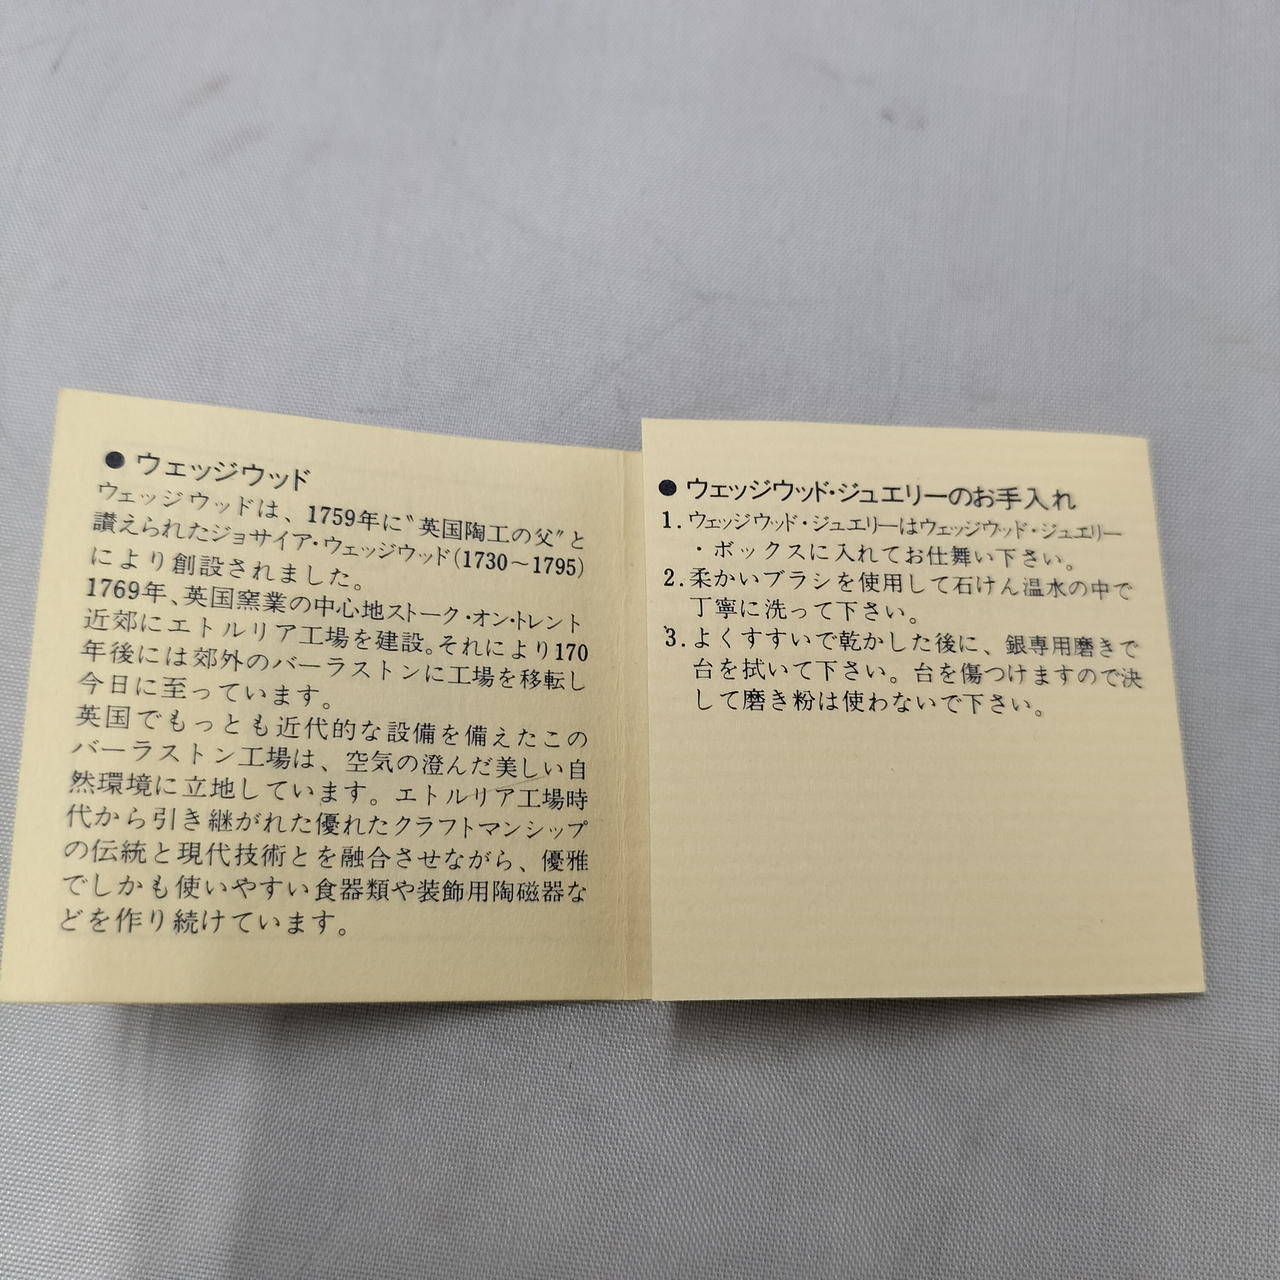 ●ウェッジウッド
ウェッジウッドは、1759年に〝英国陶工の父〟と
讃えられたジョサイア・ウェッジウッド(1730～1795)
により創設されました。
1769年、英国窯業の中心地ストーク・オン・トレント
近郊にエトルリア工場を建設。それにより170
年後には郊外のバーラストンに工場を移転し
今日に至っています。
英国でもっとも近代的な設備を備えたこの
バーラストン工場は、空気の澄んだ美しい自
然環境に立地しています。エトルリア工場時
代から引き継がれた優れたクラフトマンシップ
の伝統と現代技術とを融合させながら、優雅
でしかも使いやすい食器類や装飾用陶磁器な
どを作り続けています。
●ウェッジウッド・ジュエリーのお手入れ
1.ウェッジウッド・ジュエリーはウェッジウッド・ジュエリー
・ボックスに入れてお仕舞い下さい。
2.柔かいブラシを使用して石けん温水の中で
丁寧に洗って下さい。
3.よくすすいで乾かした後に、銀専用磨きで
台を拭いて下さい。台を傷つけますので決
して磨き粉は使わないで下さい。